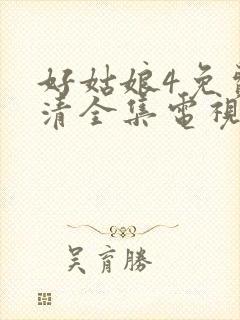 好姑娘4免
清全集電視
吴育勝